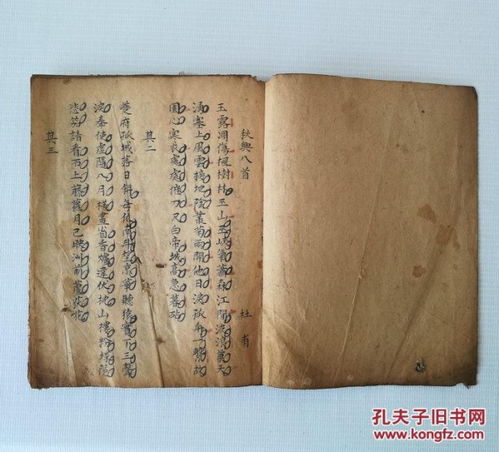 秋興八首
杜甫
玉露凋傷楓樹林巫山巫峽氣蕭森江間波浪兼天
湧塞上風雲接地陰叢菊兩開他日淚孤舟一繫故
園心寒衣處處催刀尺白帝城高急暮砧
其二
夔府孤城落日斜每依南斗望京華聽猿實下三聲
淚奉使虛隨八月槎畫省香爐違伏枕山樓粉堞隱
悲笳請看石上藤蘿月已映洲前蘆荻花
其三
孔夫子旧书网
kongfz.com